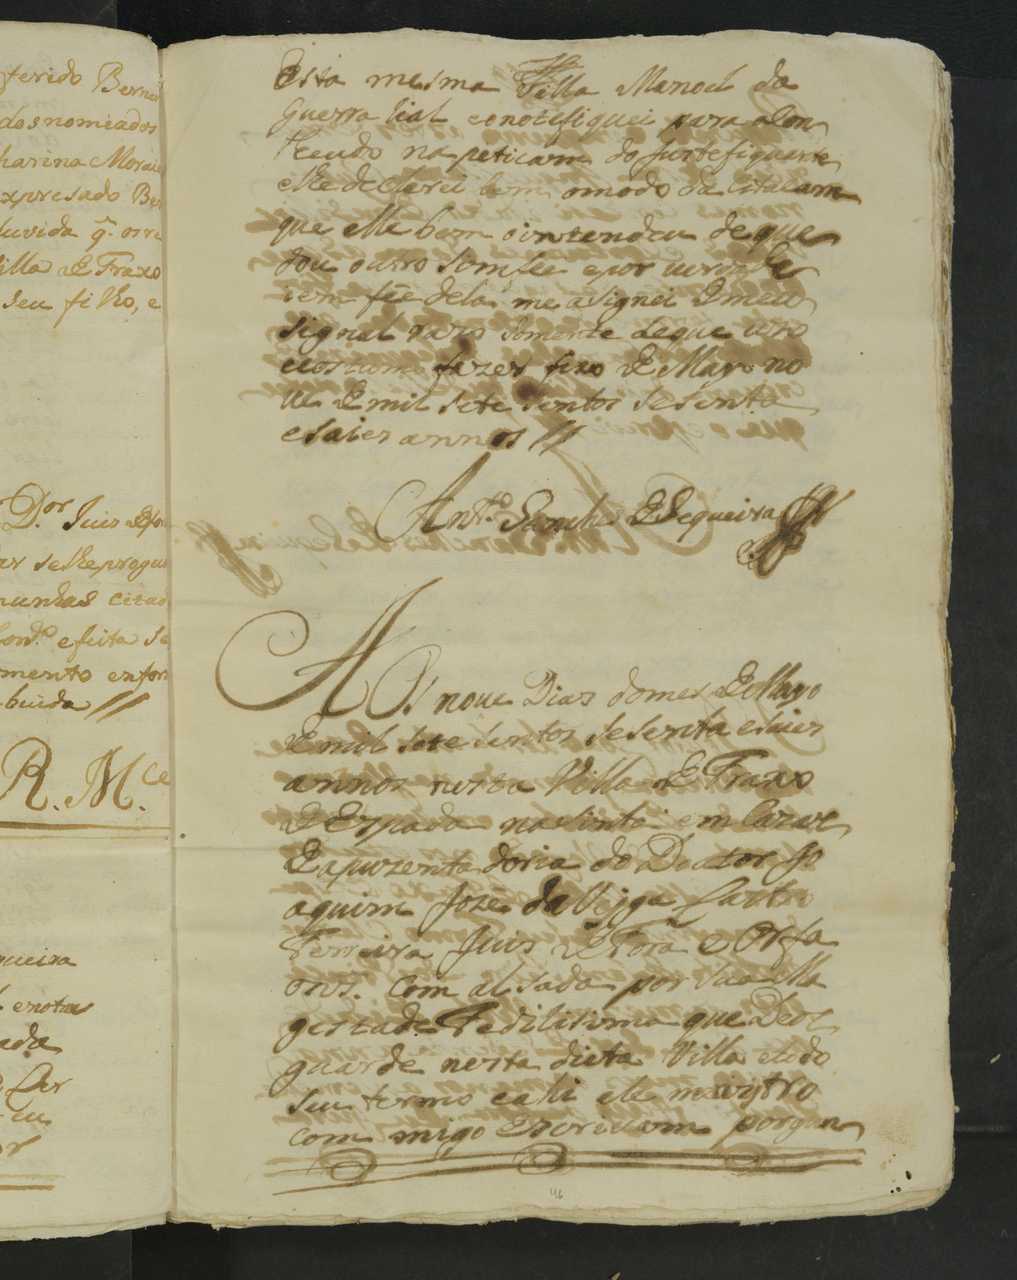 terido Bernar
dos nomeados
harina Morais
xpresado Ber
duvida q̃ orre
illa de Fraxo
seu filho, e
D.or Juis de for
ar selhe progun
munhas citad
mento enfor
buida //
R. M.ce
queira
enotas
ade
Ler
eu
or
Esta mesma Villa Manoel da
Guerra Lial enotefiquei para o Con
teudo na peticam do
elhe declarei bem omodo da Citacam
que elle bem o intendeu de que
dou ourro sim fee e por verdade
iem fée dela me asignei de meu
signal raro somente de que uzo
ecostumo fazer fixo de Mayo no
ue de mil sete sentos sesenta
esaies annos //
Ant.o Sanches de Sequeira
Aos noue Dias do mes de Mayo
de mil sete sentos sesenta esaies
annos nesta Villa de Fraxo
de Espada nasinta em Cazas
de apuzentadoria do Doctor Jo
aquim José da Veyga Castro
Ferreira Juis de Fora e Orfa
ons. Com alsada por sua Ma
gestade Fedilisima que Deos
guarde nesta dieta Villa etodo
seu termo eahi ele menistro
com migo escrivam porgun
46